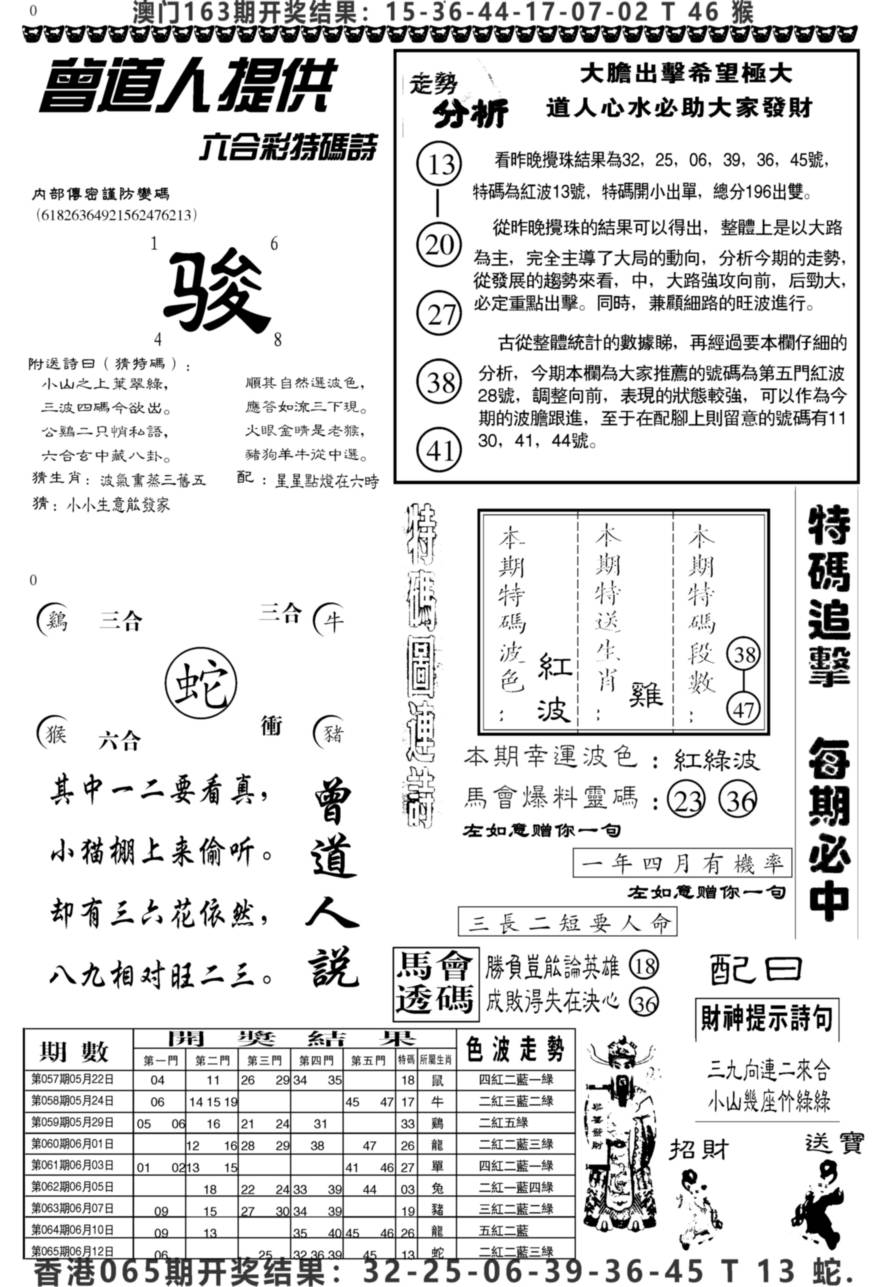 0
澳门163期开奖结果：15-36-44-17-07-02 T 46 猴
曾道人提供
六合彩特碼詩
内部傳密謹防變碼
（61826364921562476213）
1 6
骏
4 8
附送詩曰（猜特碼）：
小山之上葉翠綠， 順其自然選波色，
三波四碼今欲出。 應答如流三下現。
公鷄二只悄私語， 火眼金睛是老猴，
六合玄中藏八卦。 豬狗羊牛從中選。
猜生肖：波氣熏蒸三舊五 配：星星點燈在六時
猜：小小生意能發家
走勢
分析
大膽出擊希望極大
道人心水必助大家發財
13
20
27
38
41
看昨晚攪珠結果為32，25，06，39，36，45號，
特碼為紅波13號，特碼開小出單，總分196出雙。
從昨晚攪珠的結果可以得出，整體上是以大路
為主，完全主導了大局的動向，分析今期的走勢，
從發展的趨勢來看，中，大路強攻向前，后勁大，
必定重點出擊。同時，兼顧細路的旺波進行。
古從整體統計的數據睇，再經過要本欄仔細的
分析，今期本欄為大家推薦的號碼為第五門紅波
28號，調整向前，表現的狀態較強，可以作為今
期的波膽跟進，至于在配腳上則留意的號碼有11
30，41，44號。
0
鷄 三合 三合 牛
蛇
猴 六合 衝 豬
其中一二要看真，
小猫棚上来偷听。
却有三六花依然，
八九相对旺二三。
曾道人説
特碼圖連詩
本期特碼波色：紅波
本期特送生肖：雞
本期特碼段數：38 47
本期幸運波色：紅綠波
馬會爆料靈碼：23 36
左如意赠你一句
一年四月有機率
左如意赠你一句
三長二短要人命
特碼追擊 每期必中
馬會透碼
勝負豈能論英雄 18
成敗得失在決心 36
配曰
財神提示詩句
三九向連二來合
小山幾座竹綠綠
招財
送寶
期數 開獎結果 色波走勢
第一門 第二門 第三門 第四門 第五門 特碼 所屬生肖
第057期05月22日 04 11 26 29 34 35 18 鼠 四紅二藍一綠
第058期05月24日 06 14 15 19 45 47 17 牛 二紅三藍二綠
第059期05月29日 05 06 16 21 24 31 33 鷄 二紅五綠
第060期06月01日 12 16 28 29 38 47 26 龍 二紅二藍三綠
第061期06月03日 01 02 13 15 41 46 27 單 四紅二藍一綠
第062期06月05日 18 22 24 33 39 44 03 兔 二紅一藍四綠
第063期06月07日 09 15 27 30 34 39 19 豬 三紅二藍二綠
第064期06月10日 09 13 35 40 45 46 26 龍 五紅二藍
第065期06月12日 06 25 32 36 39 45 13 蛇 二紅二藍三綠
香港065期开奖结果：32-25-06-39-36-45 T 13 蛇.